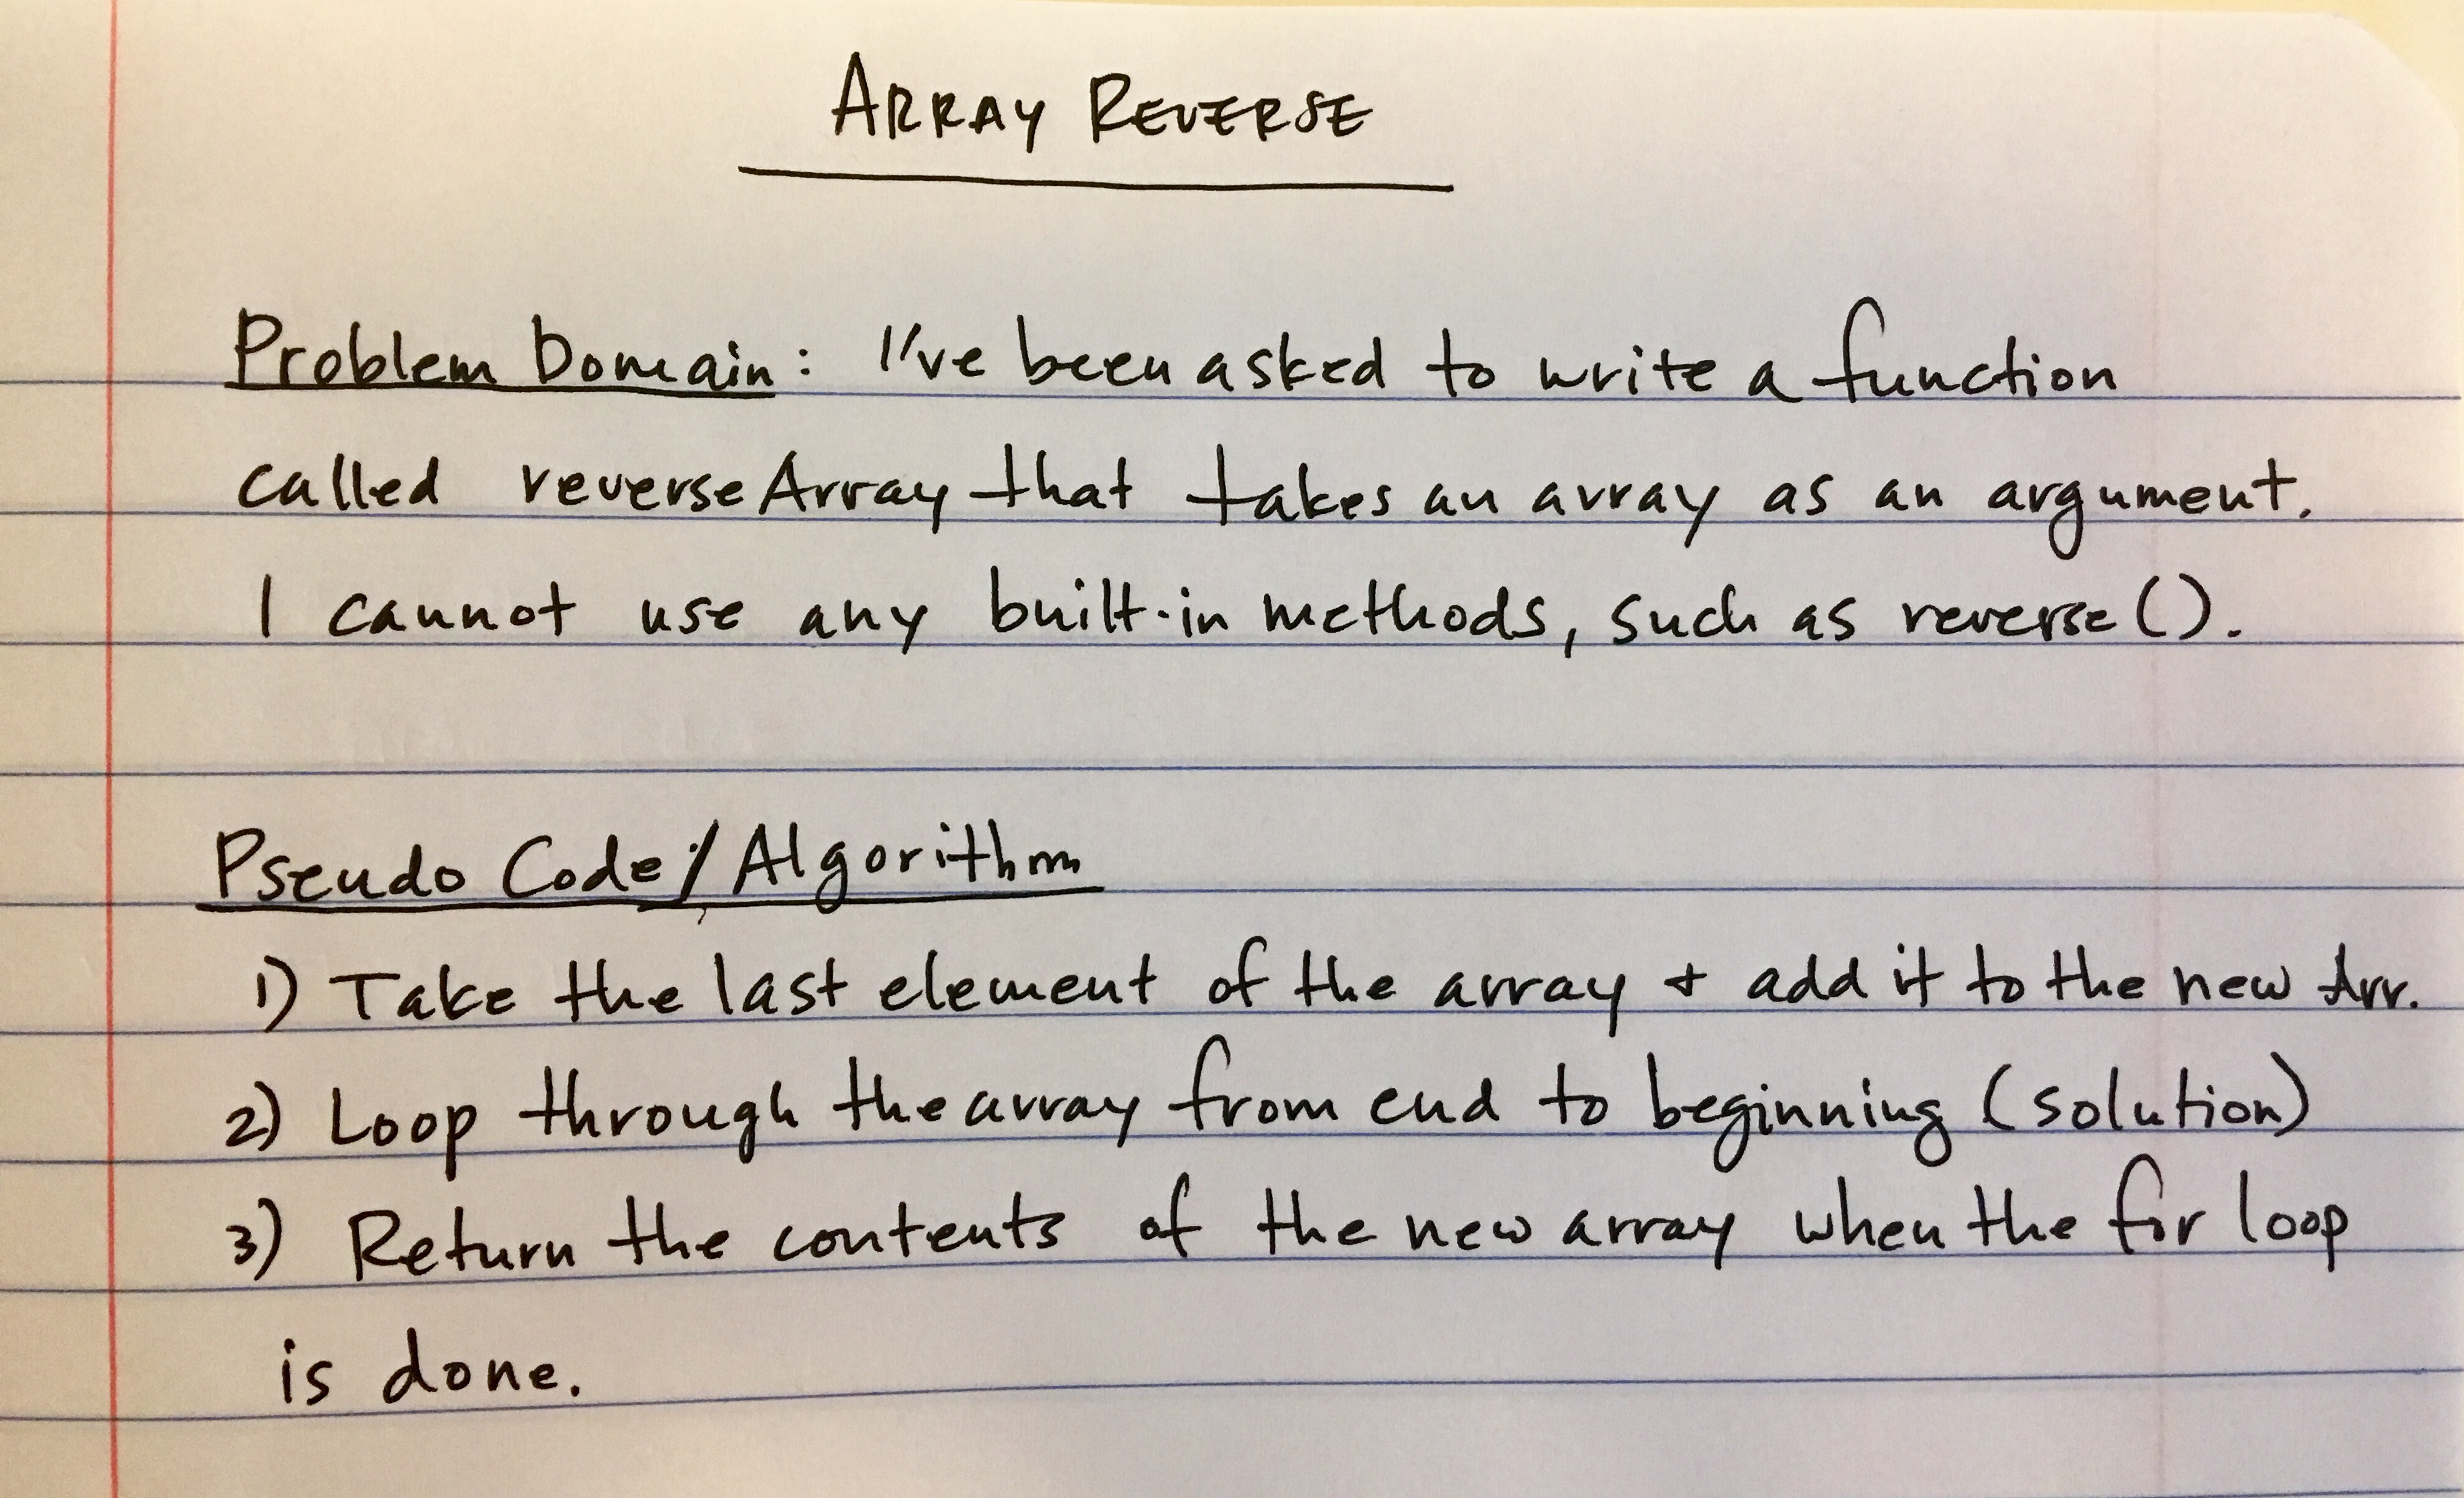 ARRAY REVERSE
Problem Domain: I've been asked to write a function
called reverseArray that takes an array as an argument.
I cannot use any built-in methods, such as reverse().
Pseudo Code/Algorithm
1) Take the last element of the array + add it to the new Arr.
2) Loop through the array from end to beginning (solution)
3) Return the contents of the new array when the for loop
is done.